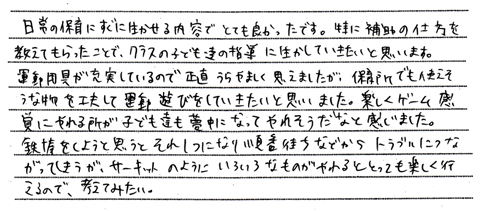 日常の保育にすぐに生かせる内容でとても良かったです。特に補助の仕方を
教えてもらったことで、クラスの子ども達の指導に生かしていきたいと思います。
運動用具が充実しているので正直うらやましく思えましたが、保育所でも使えそ
うな物を工夫して運動遊びをしていきたいと思いました。楽しくゲーム感
覚にやれる所が子ども達も夢中になってやれそうだなと感じました。
鉄棒をしようと思うとそれ1つになり順番待ちなどからトラブルにつな
がってしまうが、サーキットのようにいろいろなものがやれるととっても楽しく行
えるので、考えてみたい。